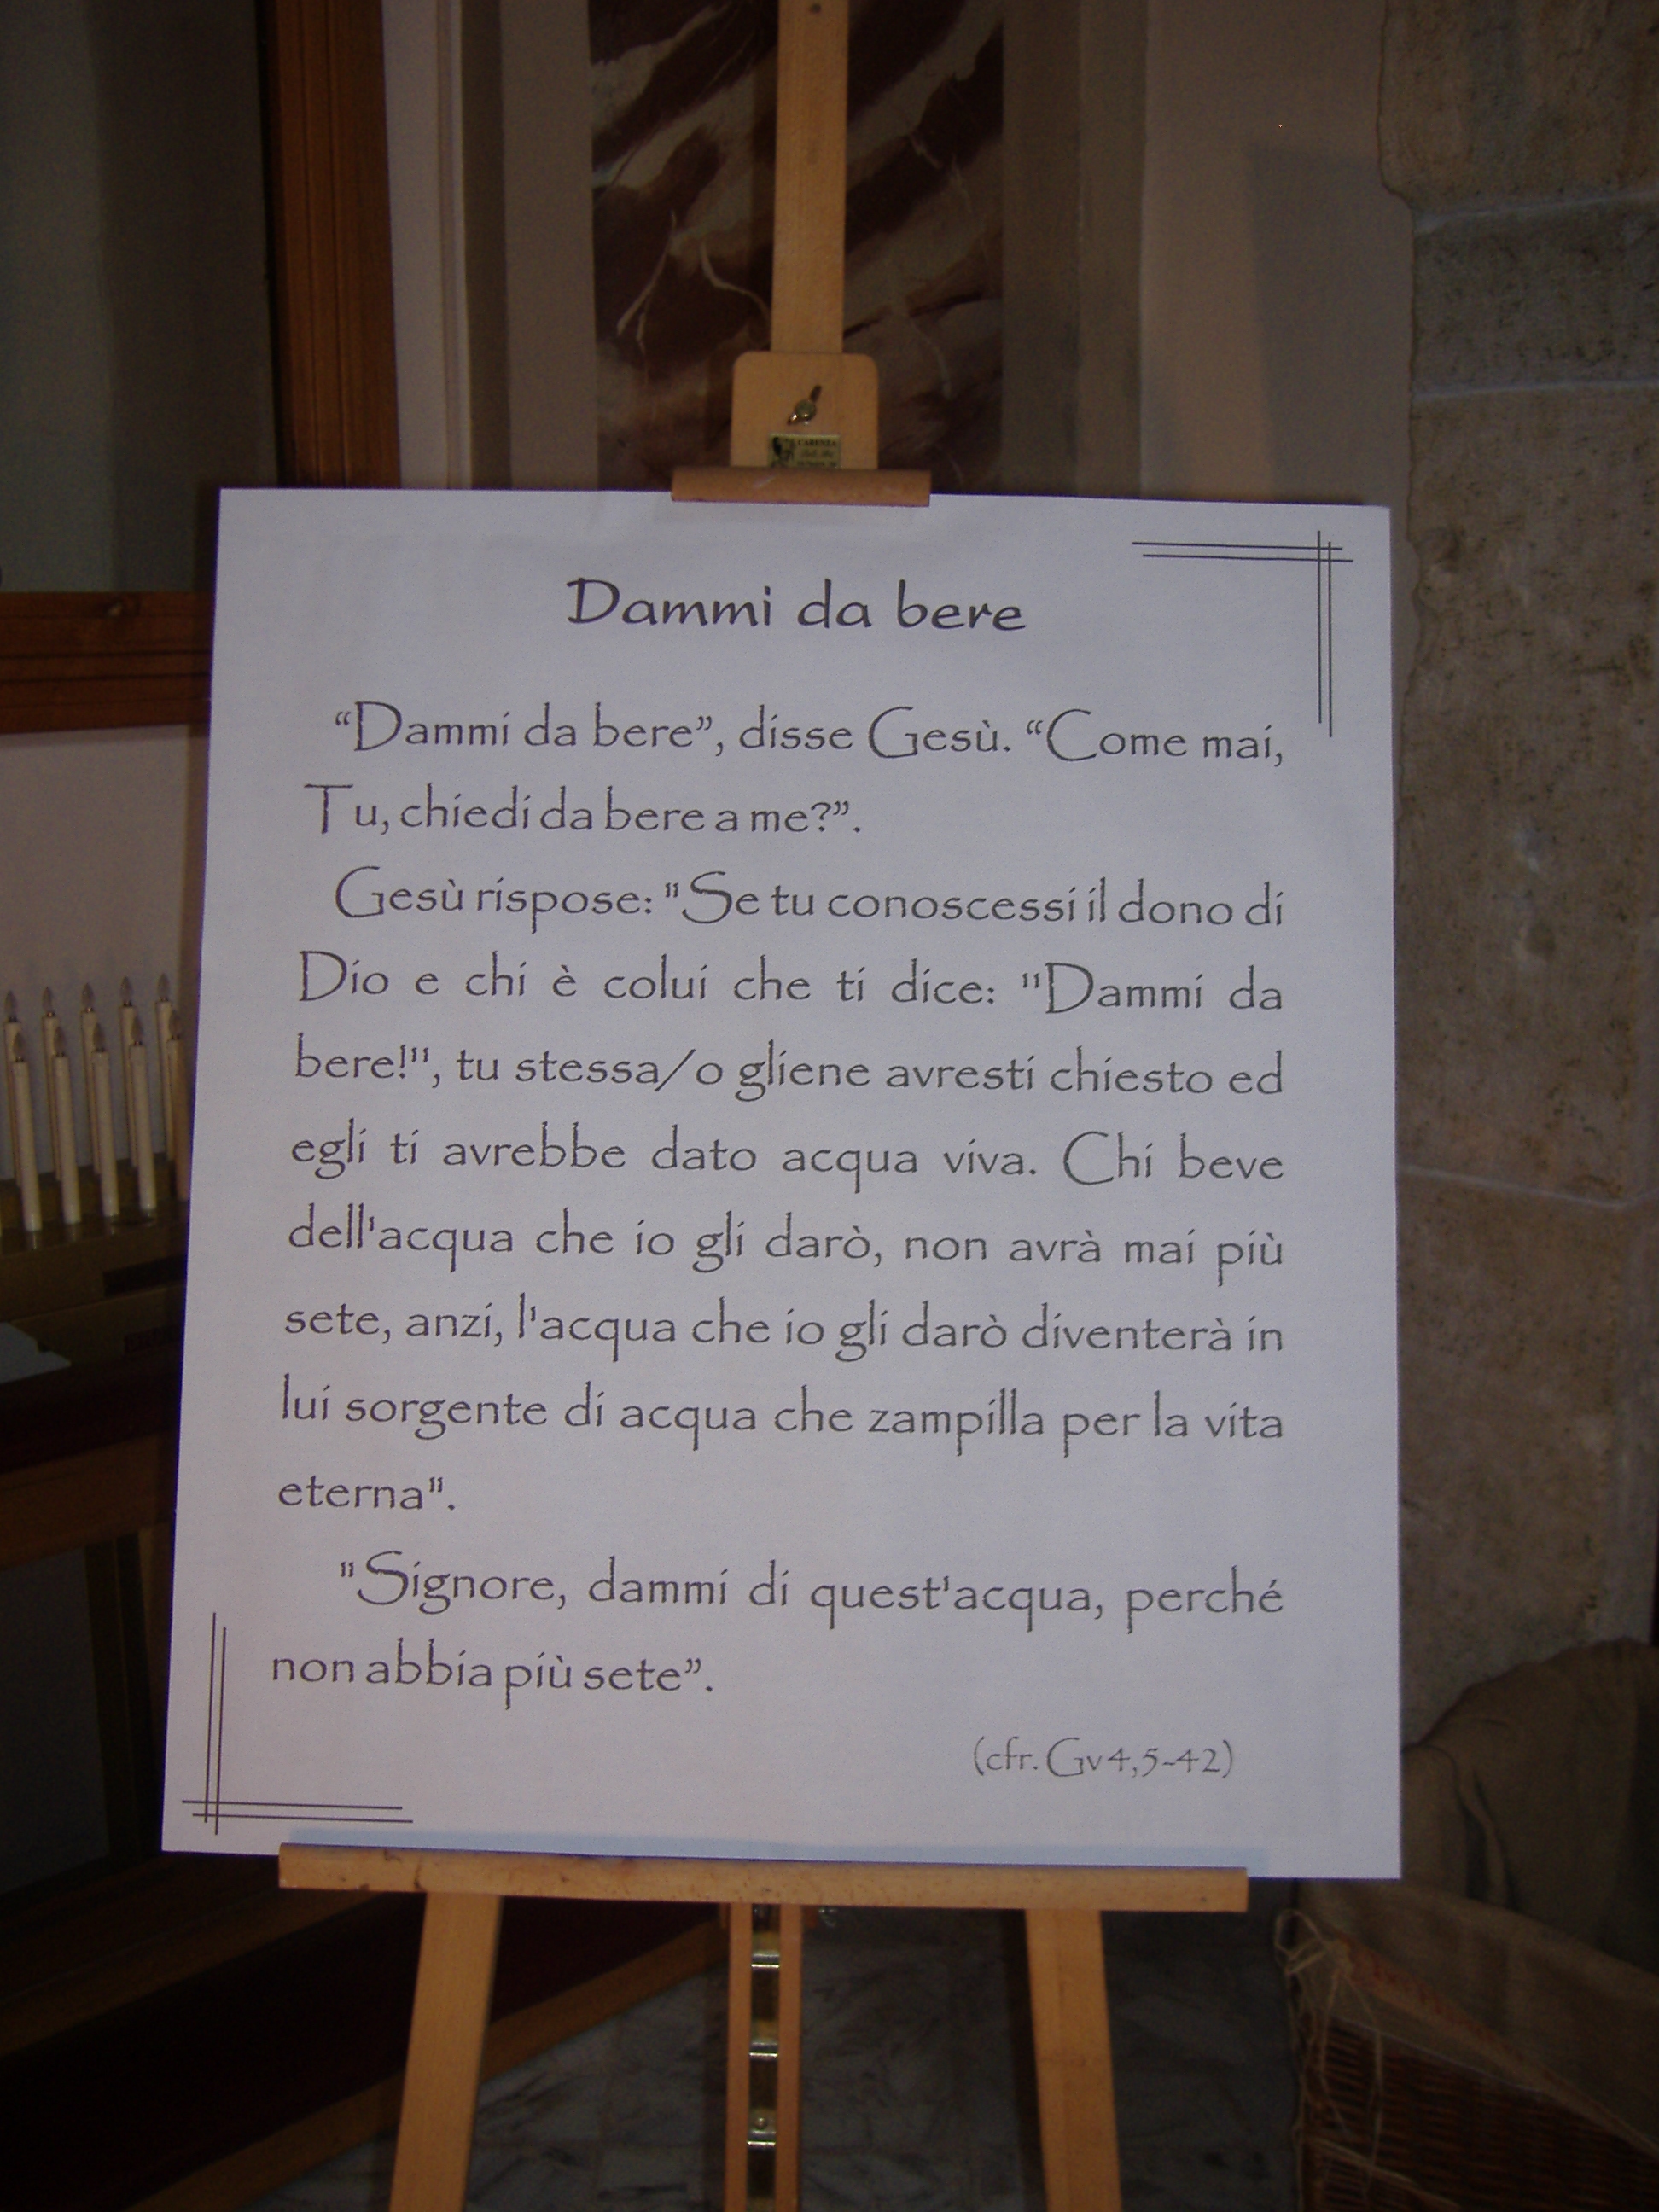 CARENZA
Dammi da bere
“Dammi da bere”, disse Gesù. “Come mai,
Tu, chiedi da bere a me?”.
Gesù rispose: "Se tu conoscessi il dono di
Dio e chi è colui che ti dice: "Dammi da
bere!", tu stessa/o gliene avresti chiesto ed
egli ti avrebbe dato acqua viva. Chi beve
dell'acqua che io gli darò, non avrà mai più
sete, anzi, l'acqua che io gli darò diventerà in
lui sorgente di acqua che zampilla per la vita
eterna".
"Signore, dammi di quest'acqua, perché
non abbia più sete”.
(cfr. Gv 4,5-42)